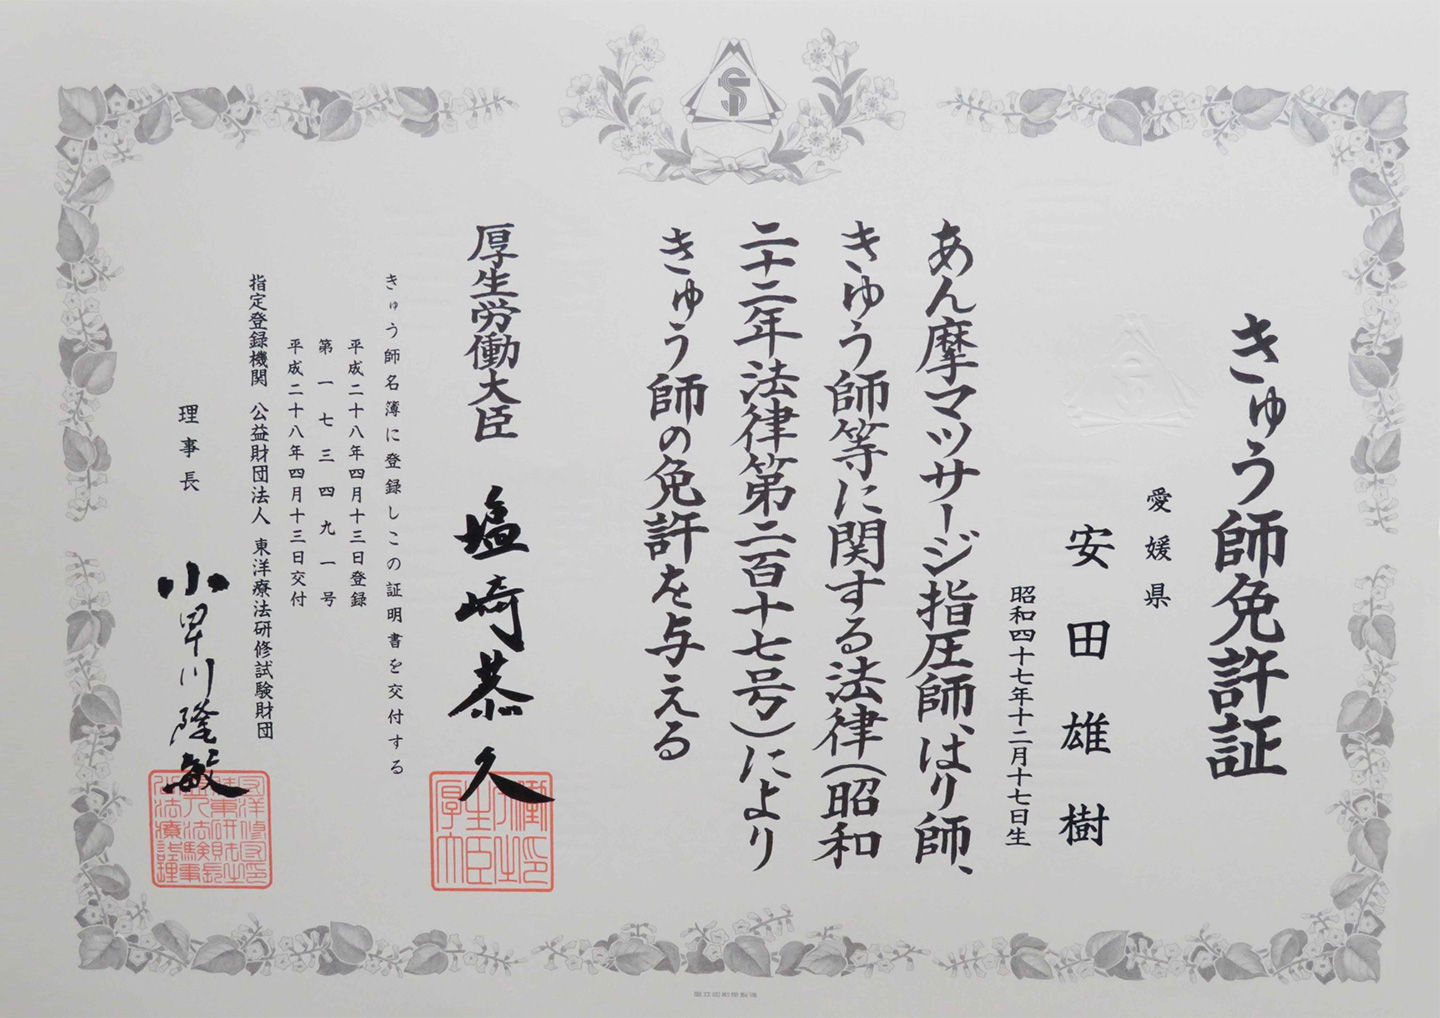 きゅう師免許証
愛媛県
安田雄樹
昭和四十七年十二月十七日生
あん摩マツサージ指圧師、はり師、
きゆう師等に関する法律(昭和
二十二年法律第二百十七号)により
きゅう師の免許を与える
厚生労働大臣 塩崎恭久
きゅう師名簿に登録しこの証明書を交付する
平成二十八年四月十三日登録
第一七三四九一号
平成二十八年四月十三日交付
指定登録機関 公益財団法人 東洋療法研修試験財団
理事長 小早川隆敏